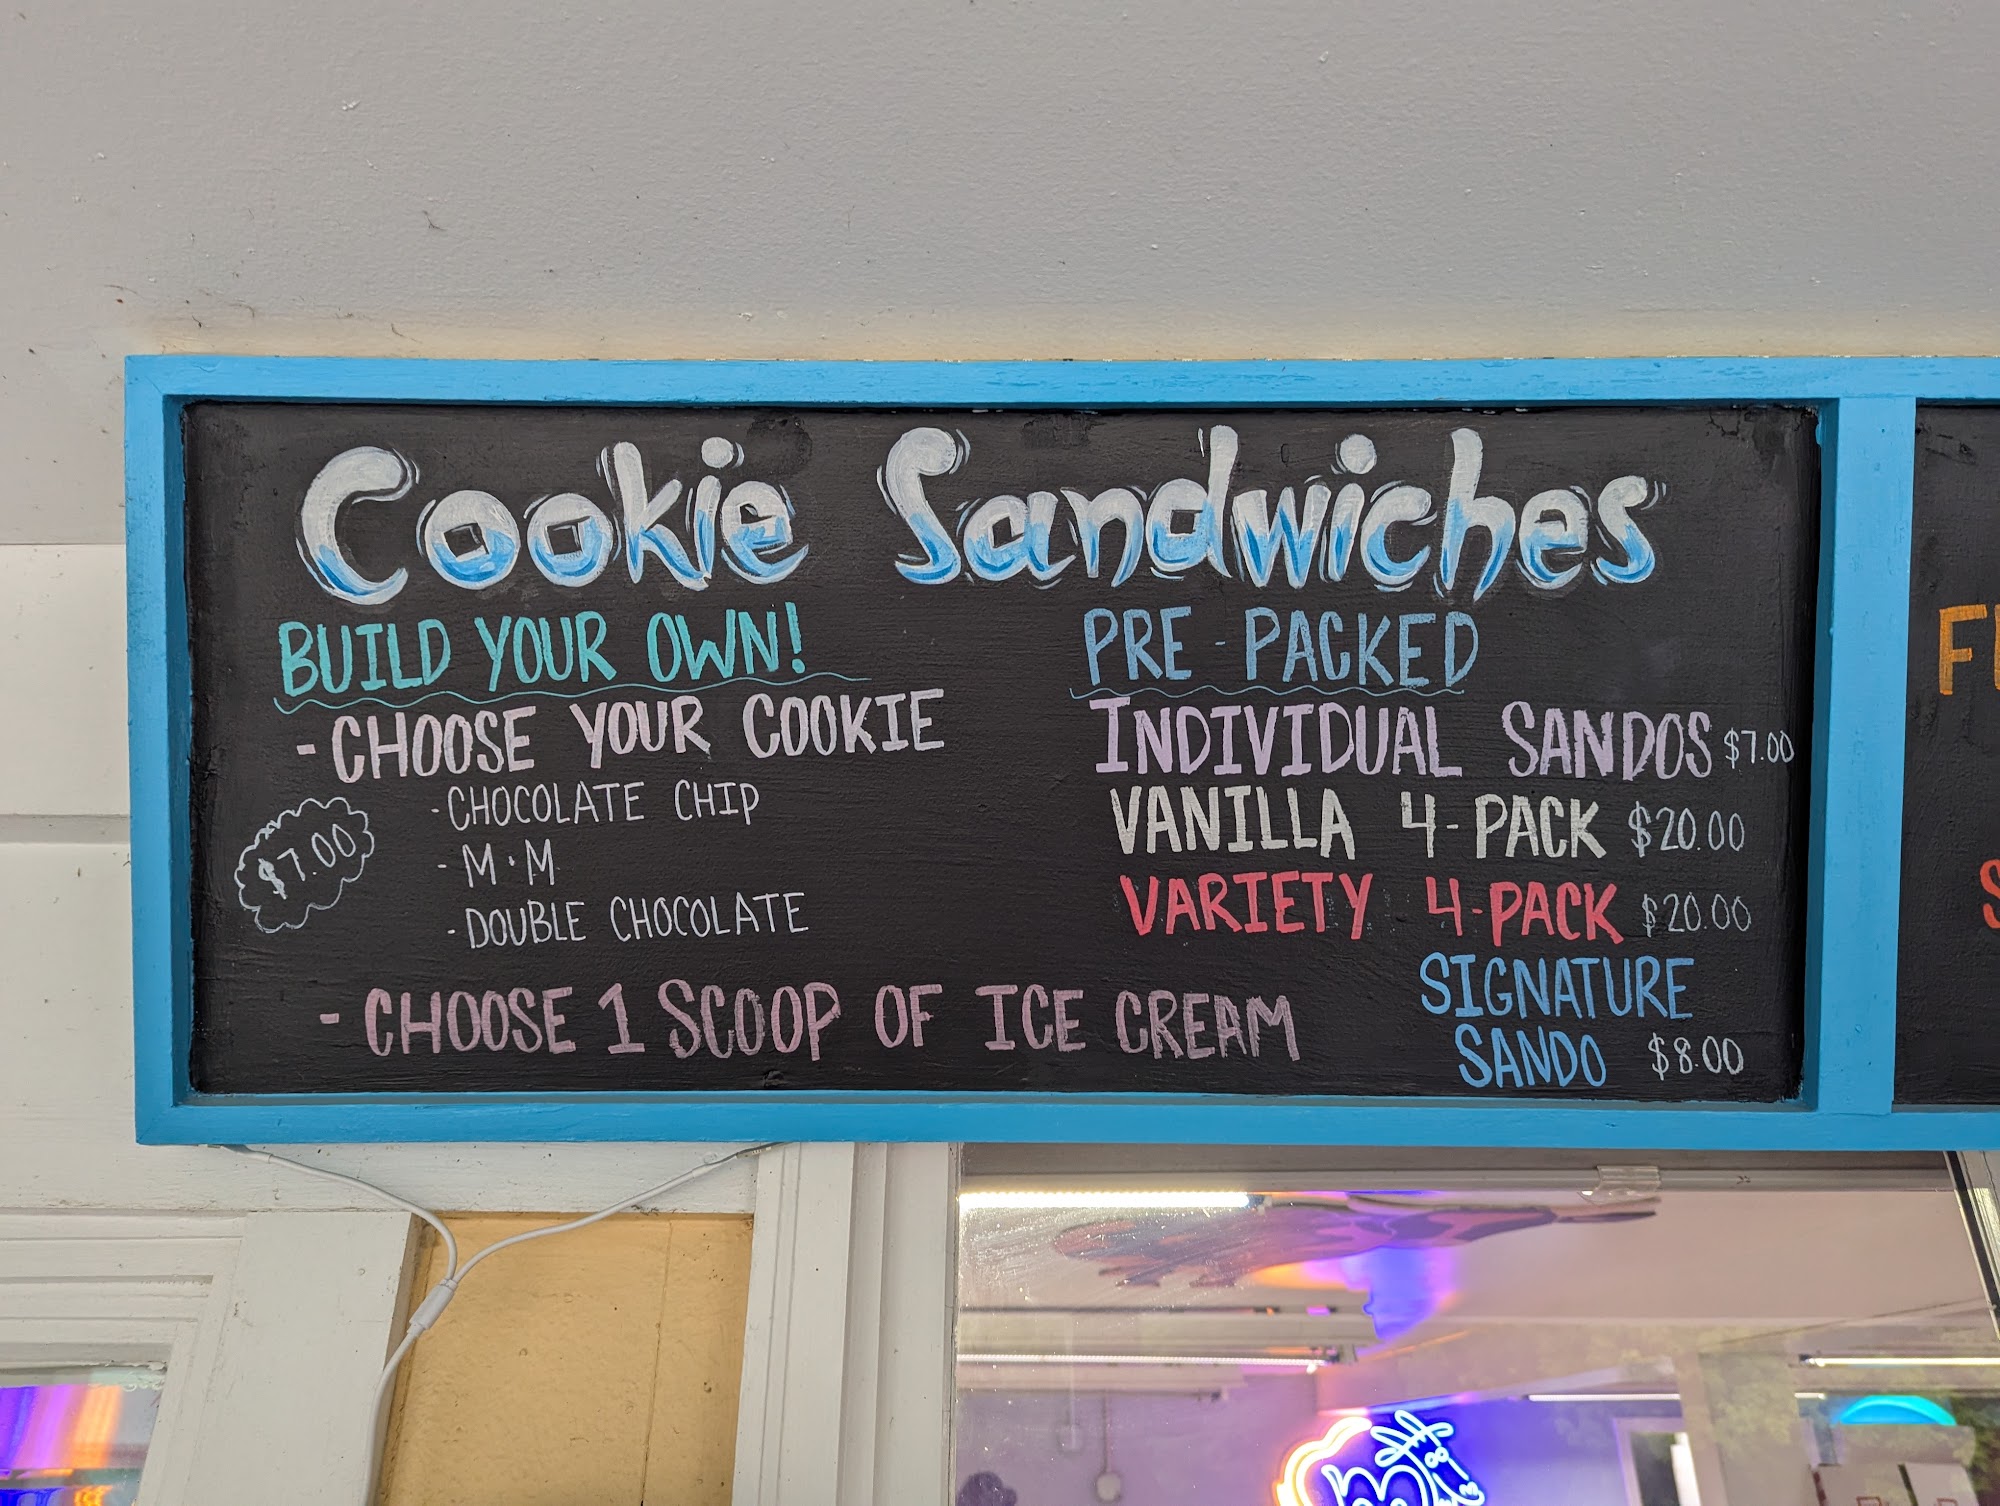 Cookie Sandwiches
BUILD YOUR OWN!
- CHOOSE YOUR COOKIE
- CHOCOLATE CHIP
- M·M
- DOUBLE CHOCOLATE
$7.00
- CHOOSE 1 SCOOP OF ICE CREAM
PRE-PACKED
INDIVIDUAL SANDOS $7.00
VANILLA 4-PACK $20.00
VARIETY 4-PACK $20.00
SIGNATURE
SANDO $8.00